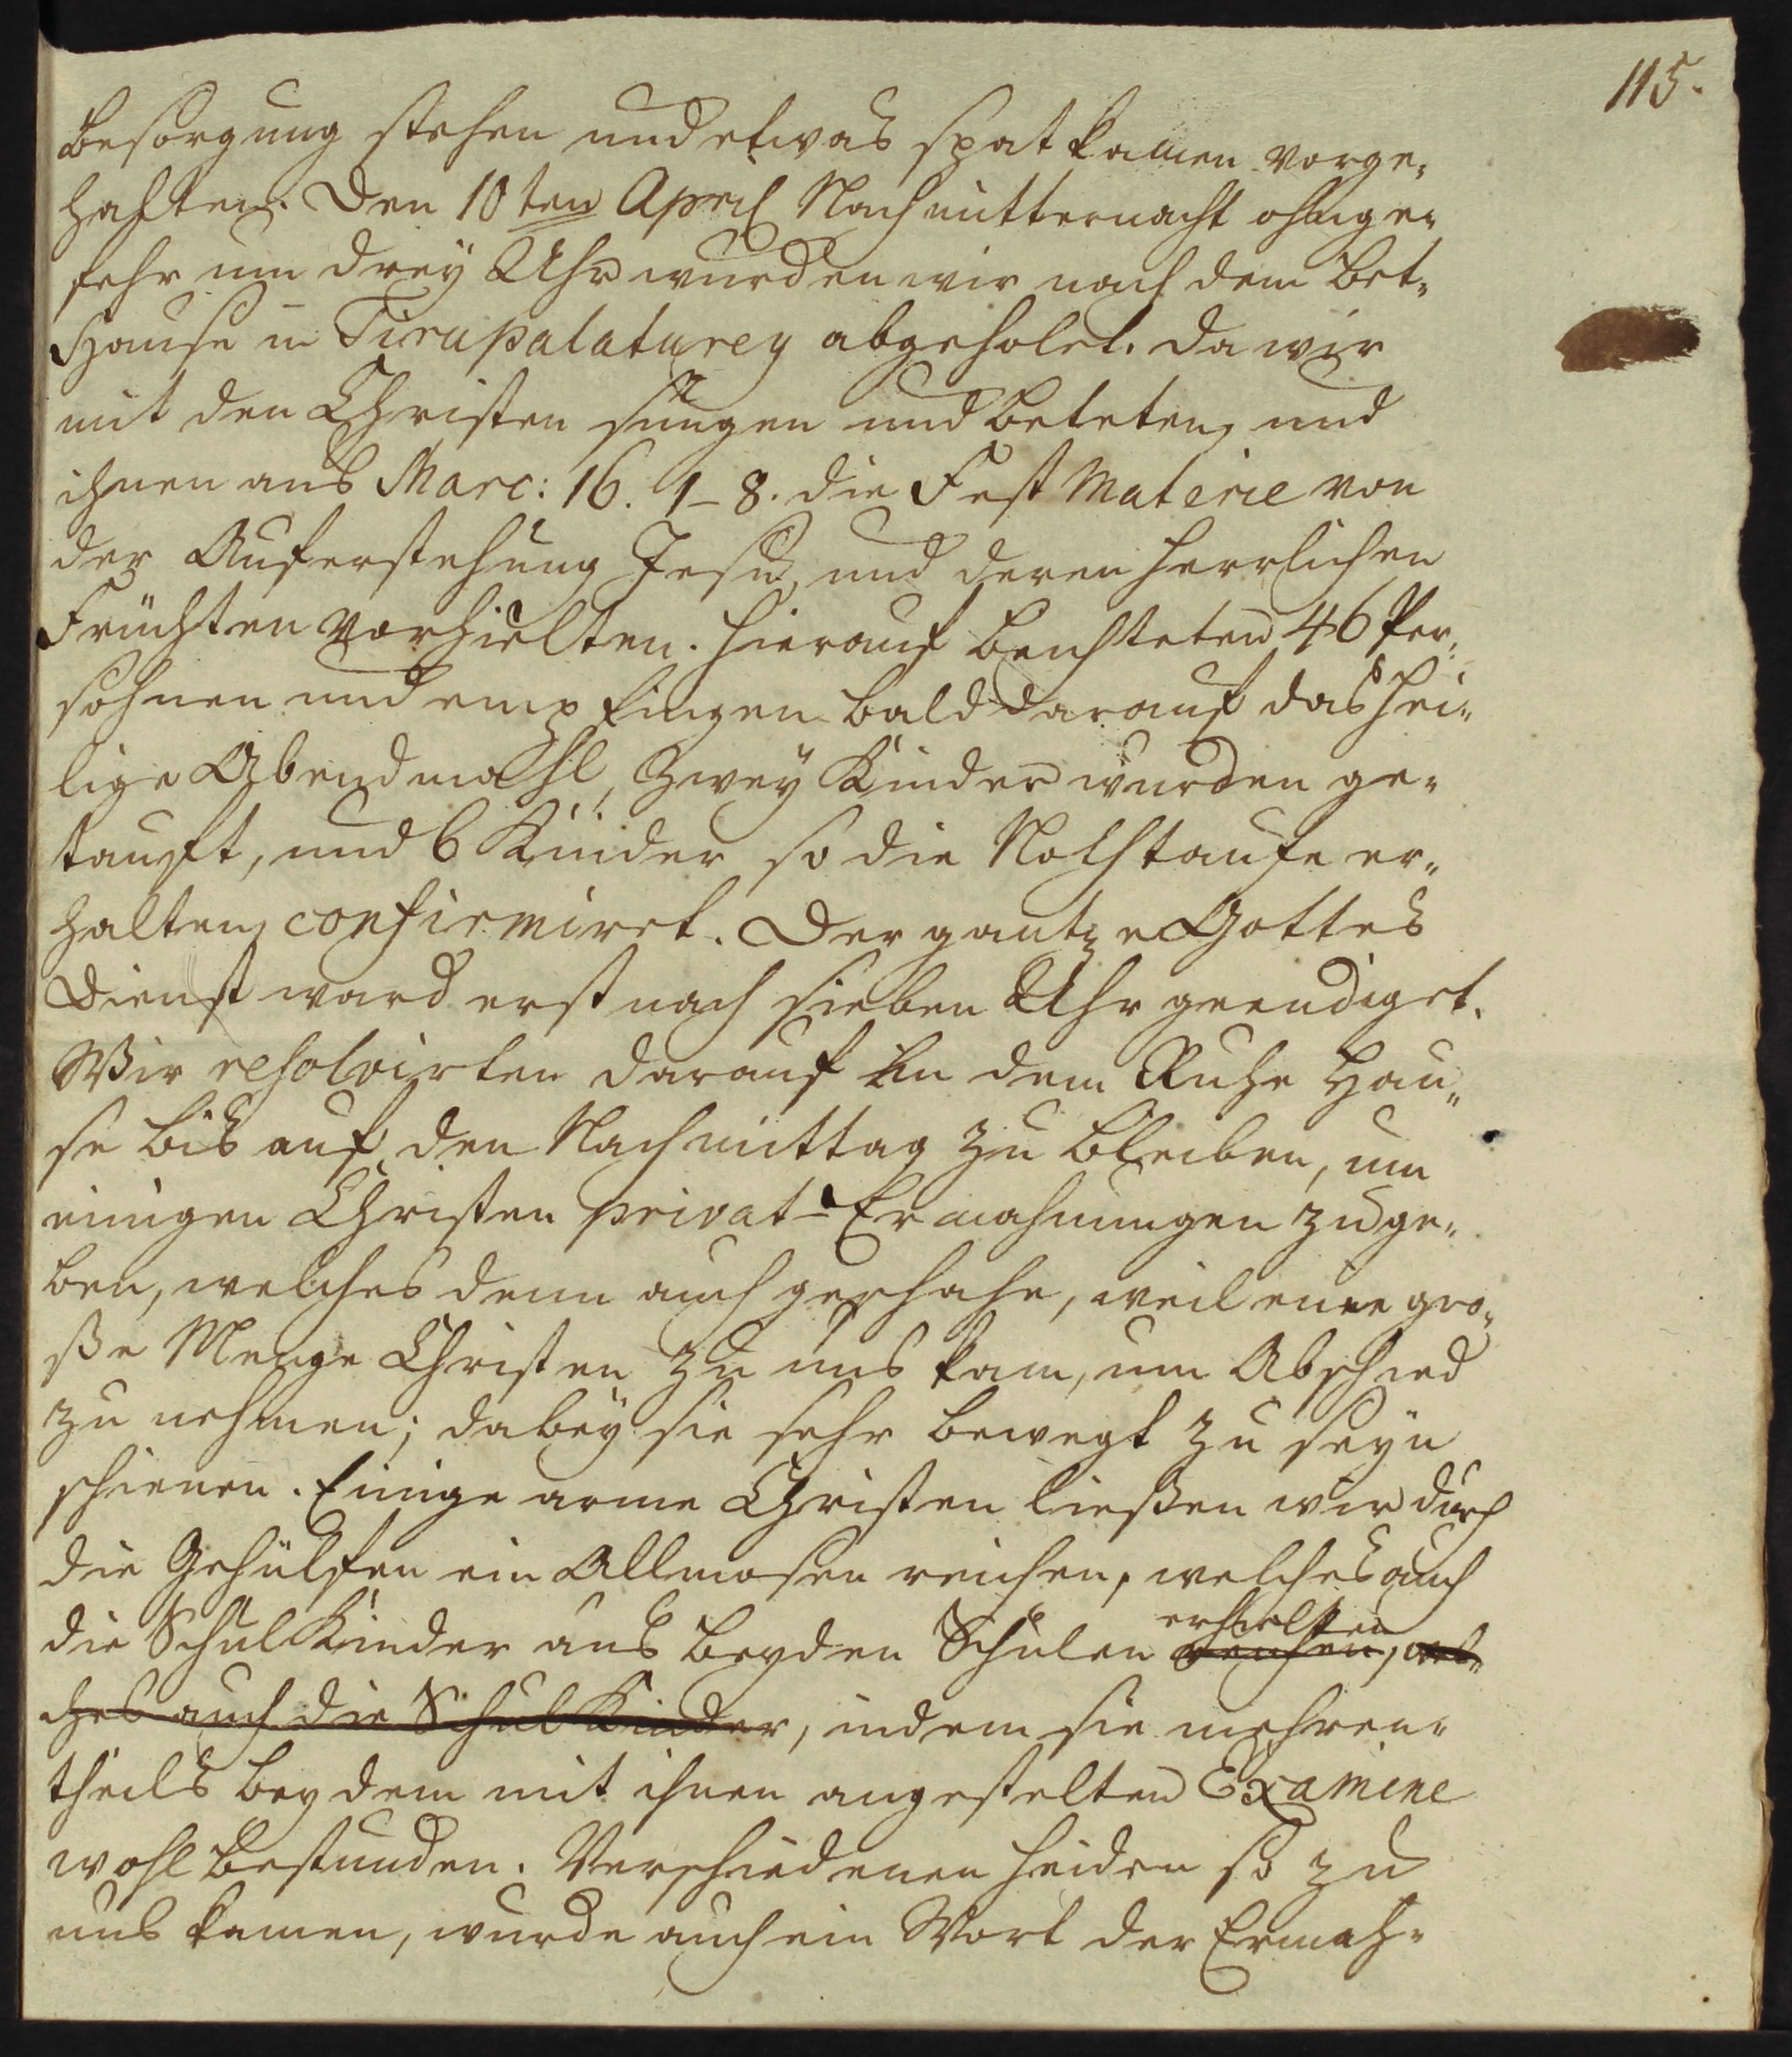 115.
besorgung stehen und etwas spat kamen vorge-
halten. Den 10ten April Nachmitternacht ohnge-
fehr um drey Uhr wurden wir nach dem Bet-
Hause in Tirupalaturey abgeholet. da wir
mit den Christen sungen und beteten, und
ihnen aus Marc: 16. 1-8. die Fest Materie von
der Auferstehung Jesu, und deren herrlichen
Früchten vorhielten. hierauf beichteten 46 Per-
sohnen und empfingen bald darauf das hei-
lige Abendmahl, Zwey Kinder wurden ge-
tauft, und 6 Kinder so die Nothtaufe er-
halten, confirmiret. Der gantze Gottes
Dienst ward erst nach sieben Uhr geendiget.
Wir resolvirten darauf in dem Ruhe Hau-
se bis auf den Nachmittag zu bleiben, um
einigen Christen privat-Ermahnungen zu ge-
ben, welches denn auch geschahe, weil eine gro-
ße Menge Christen zu uns kam, um Abschied
zu nehmen; dabey sie sehr bewegt zu seyn
schienen. Einige arme Christen ließen wir durch
die Gehülfen ein Allmosen reichen, welches auch
die Schul Kinder aus beyden Schulen erhielten reichen, wel-
ches auch die Schul Kinder, indem sie mehren-
theils bey dem mit ihnen angestelten Examine
wohl bestunden. Verschiedenen Heiden so zu
uns kamen, wurde auch ein Wort der Ermah-